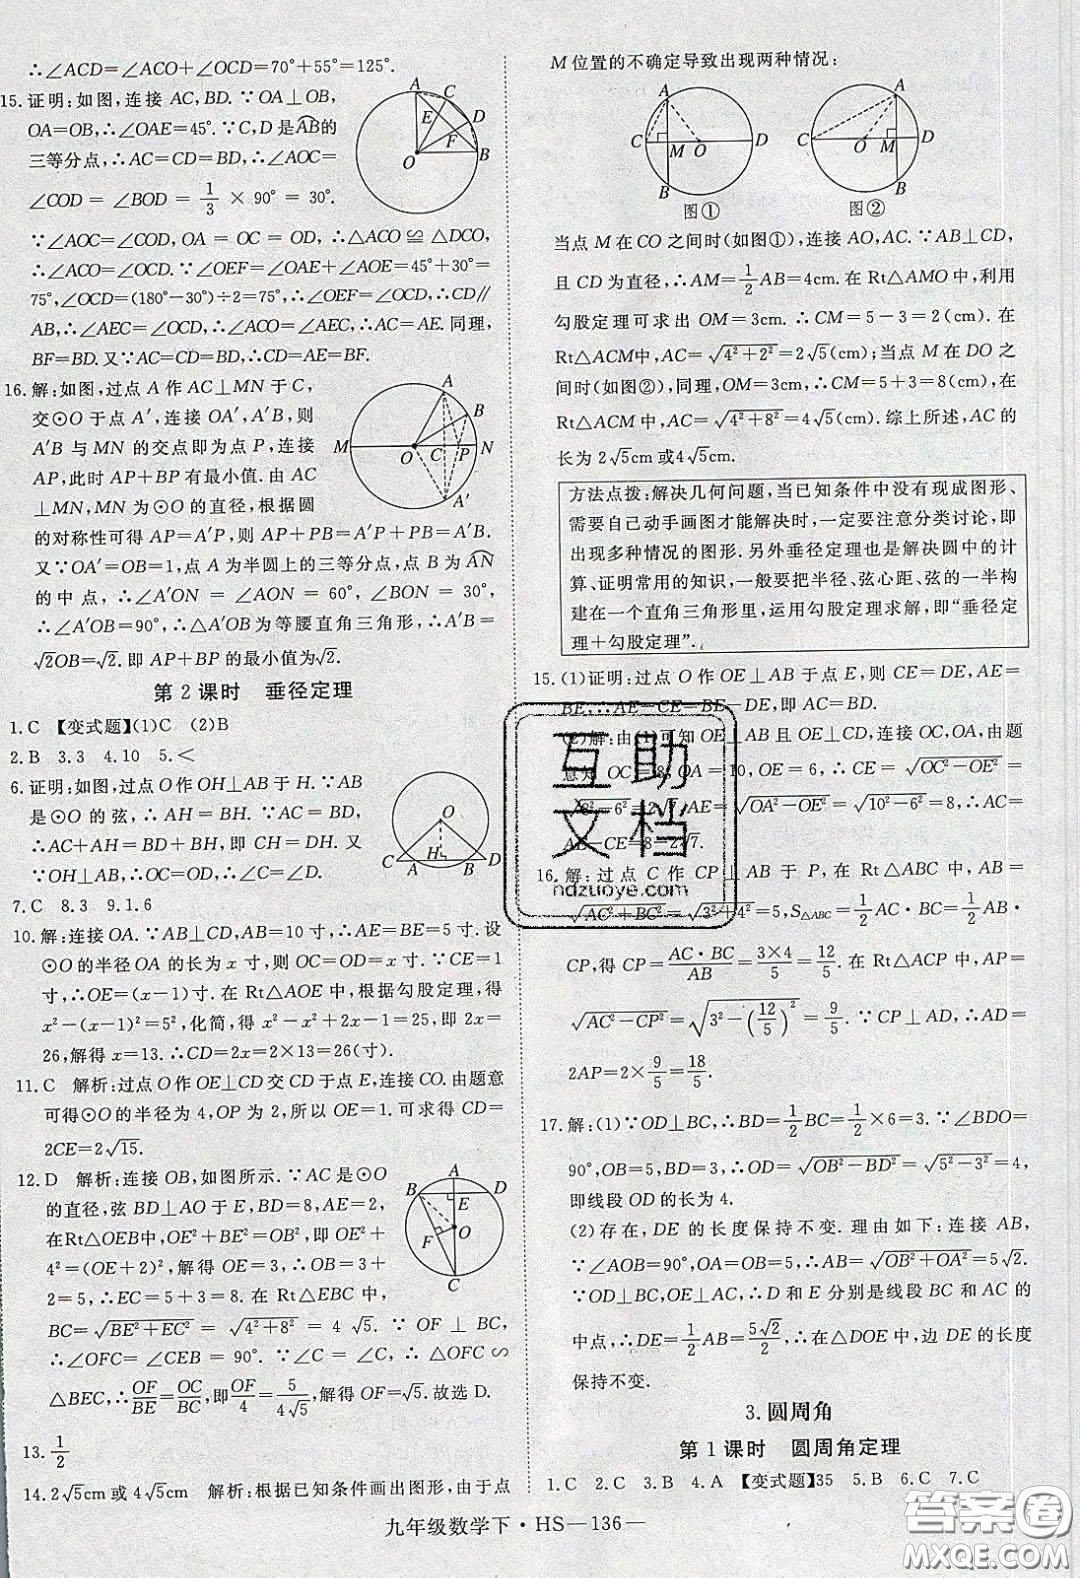 ∴∠ACD=∠ACO+∠OCD=70°+55°=125°.
15.证明:如图,连接 AC,BD.∵OA⊥OB,
OA=OB,∴∠OAE=45°.∵C,D 是AB的
三等分点,∴AC=CD=BD,∴∠AOC=
∠COD = ∠BOD = 1/3 × 90° = 30°.
∵∠AOC=∠COD,OA = OC = OD,∴△ACO ≌ △DCO,
∴∠ACO=∠OCD.∵∠OEF=∠OAE+∠AOE=45°+30°=
75°,∠OCD=(180°−30°)÷2=75°,∴∠OEF=∠OCD,∴CD∥
AB,∴∠AEC=∠OCD,∴∠ACO=∠AEC,∴AC=AE.同理,
BF=BD.又∵AC=CD=BD,∴CD=AE=BF.
16.解:如图,过点 A 作 AC⊥MN 于 C,
交⊙O 于点 A′,连接 OA′,A′B,则
A′B 与 MN 的交点即为点 P,连接
AP,此时 AP+BP 有最小值.由 AC
⊥MN,MN 为⊙O 的直径,根据圆
的对称性可得 AP=A′P,则 AP+PB=A′P+PB=A′B.
又∵OA′=OB=1,点 A为半圆上的三等分点,点 B 为AN
的中点,∴∠A′ON = ∠AON = 60°,∠BON = 30°,
∴∠A′OB=90°,∴△A′OB 为等腰直角三角形,∴A′B=
√2OB=√2.即 AP+BP 的最小值为√2.
第 2 课时 垂径定理
1.C 【变式题】(1)C (2)B
2.B 3.3 4.10 5.<
6.证明:如图,过点O作 OH⊥AB 于 H.∵AB
是⊙O 的弦,∴AH = BH. ∵AC = BD,
∴AC+AH=BD+BH,即 CH=DH.又
∵OH⊥AB,∴OC=OD,∴∠C=∠D.
7.C 8.3 9.1.6
10.解:连接 OA.∵AB⊥CD,AB=10 寸,∴AE=BE=5 寸.设
⊙O 的半径 OA 的长为 x 寸,则 OC=OA=x 寸.∵CE=1
寸,∴OE=(x−1)寸.在 Rt△AOE 中,根据勾股定理,得
x²−(x−1)²=5²,化简,得 x²−x²+2x−1=25,即 2x=
26,解得 x=13.∴CD=2x=2×13=26(寸).
11.C 解析:过点 O作 OE⊥CD 交 CD 于点 E,连接 CO.由题意
可得⊙O 的半径为 4,OP 为 2,所以 OE=1.可求得 CD=
2CE=2√15.
12.D 解析:连接 OB,如图所示.∵AC是⊙O
的直径,弦 BD⊥AO 于 E,BD=8,AE=2,
在Rt△OEB中,OE²+BE²=OB²,即OE²+
4²=(OE+2)²,∴OE=3,∴OB=3+2=
5,∴EC=5+3=8.在 Rt△EBC 中,
BC=√BE²+EC² = √4²+8² = 4 √5.∵ OF ⊥ BC,
∴∠OFC = ∠CEB = 90°.∵∠C = ∠C,∴△OFC ∽
△BEC,∴OF/BE=OC/BC,即OF/4=5/4√5,解得 OF=√5.故选 D.
13.1/2
14.2√5cm或4√5cm 解析:根据已知条件画出图形,由于点
M 位置的不确定导致出现两种情况:
图① 图②
当点 M 在 CO 之间时(如图①),连接 AO,AC.∵AB⊥CD,
且 CD 为直径,∴AM=1/2AB=4cm.在 Rt△AMO 中,利用
勾股定理可求出 OM=3cm.∴CM=5−3=2(cm).在
Rt△ACM中,AC=√4²+2²=2√5(cm);当点 M 在 DO 之
间时(如图②),同理,OM=3cm,∴CM=5+3=8(cm).在
Rt△ACM 中,AC=√4²+8²=4√5(cm).综上所述,AC 的
长为 2√5cm 或4√5cm.
方法点拨:解决几何问题,当已知条件中没有现成图形、
需要自己动手画图才能解决时,一定要注意分类讨论,即
出现多种情况的图形.另外垂径定理也是解决圆中的计
算、证明常用的知识,一般要把半径、弦心距、弦的一半构
建在一个直角三角形里,运用勾股定理求解,即“垂径定
理+勾股定理”.
15.(1)证明:过点 O 作 OE⊥AB 于点 E,则 CE=DE,AE=
BE,∴AE−CE=BE−DE,即 AC=BD.
(2)解:由(1)可知 OE⊥AB 且 OE⊥CD,连接 OC,OA,由题
意知 OC=8,OA=10,OE=6,∴CE=√OC²−OE²=
√8²−6²=2√7,AE=√OA²−OE²=√10²−6²=8,∴AC=
AE−CE=8−2√7.
16.解:过点 C 作 CP⊥AB 于 P,在 Rt△ABC 中,AB=
√AC²+BC²=√3²+4²=5,S△ABC=1/2AC·BC=1/2AB·
CP,得 CP=AC·BC/AB=3×4/5=12/5.在 Rt△ACP 中,AP=
√AC²−CP²=√3²−(12/5)²=9/5.∵CP⊥AD,∴AD=
2AP=2×9/5=18/5.
17.解:(1)∵OD⊥BC,∴BD=1/2BC=1/2×6=3.∵∠BDO=
90°,OB=5,BD=3,∴OD=√OB²−BD²=√5²−3²=4,
即线段 OD 的长为 4.
(2)存在,DE 的长度保持不变.理由如下:连接 AB,
∵∠AOB=90°,OA=OB=5,∴AB=√OB²+OA²=5√2.
∵OD⊥BC,OE⊥AC,∴D 和 E 分别是线段 BC 和 AC 的
中点,∴DE=1/2AB=5√2/2,∴在△DOE 中,边 DE 的长度
保持不变.
3.圆周角
第 1 课时 圆周角定理
1.C 2.C 3.B 4.A 【变式题】35 5.B 6.C 7.C
九年级数学下·HS—136—
互助
文档
ndzuoye.com
答案圈
MXQE.COM